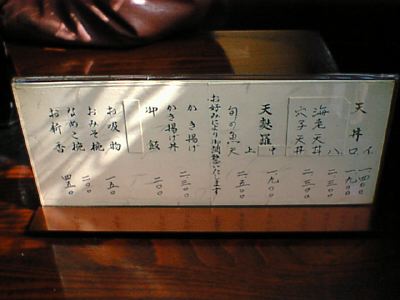 天丼 イ 一四〇〇
ロ 一九〇〇
海老天丼 ハ 二三〇〇
穴子天丼 二三〇〇
天麩羅 中 一九〇〇
上 二五〇〇
旬の魚天
お好みにより御調整いたします
かき揚げ 二三〇〇
かき揚げ丼
御飯 二〇〇
お吸物 一五〇
おみそ椀 二〇〇
なめこ椀
お新香 四五〇